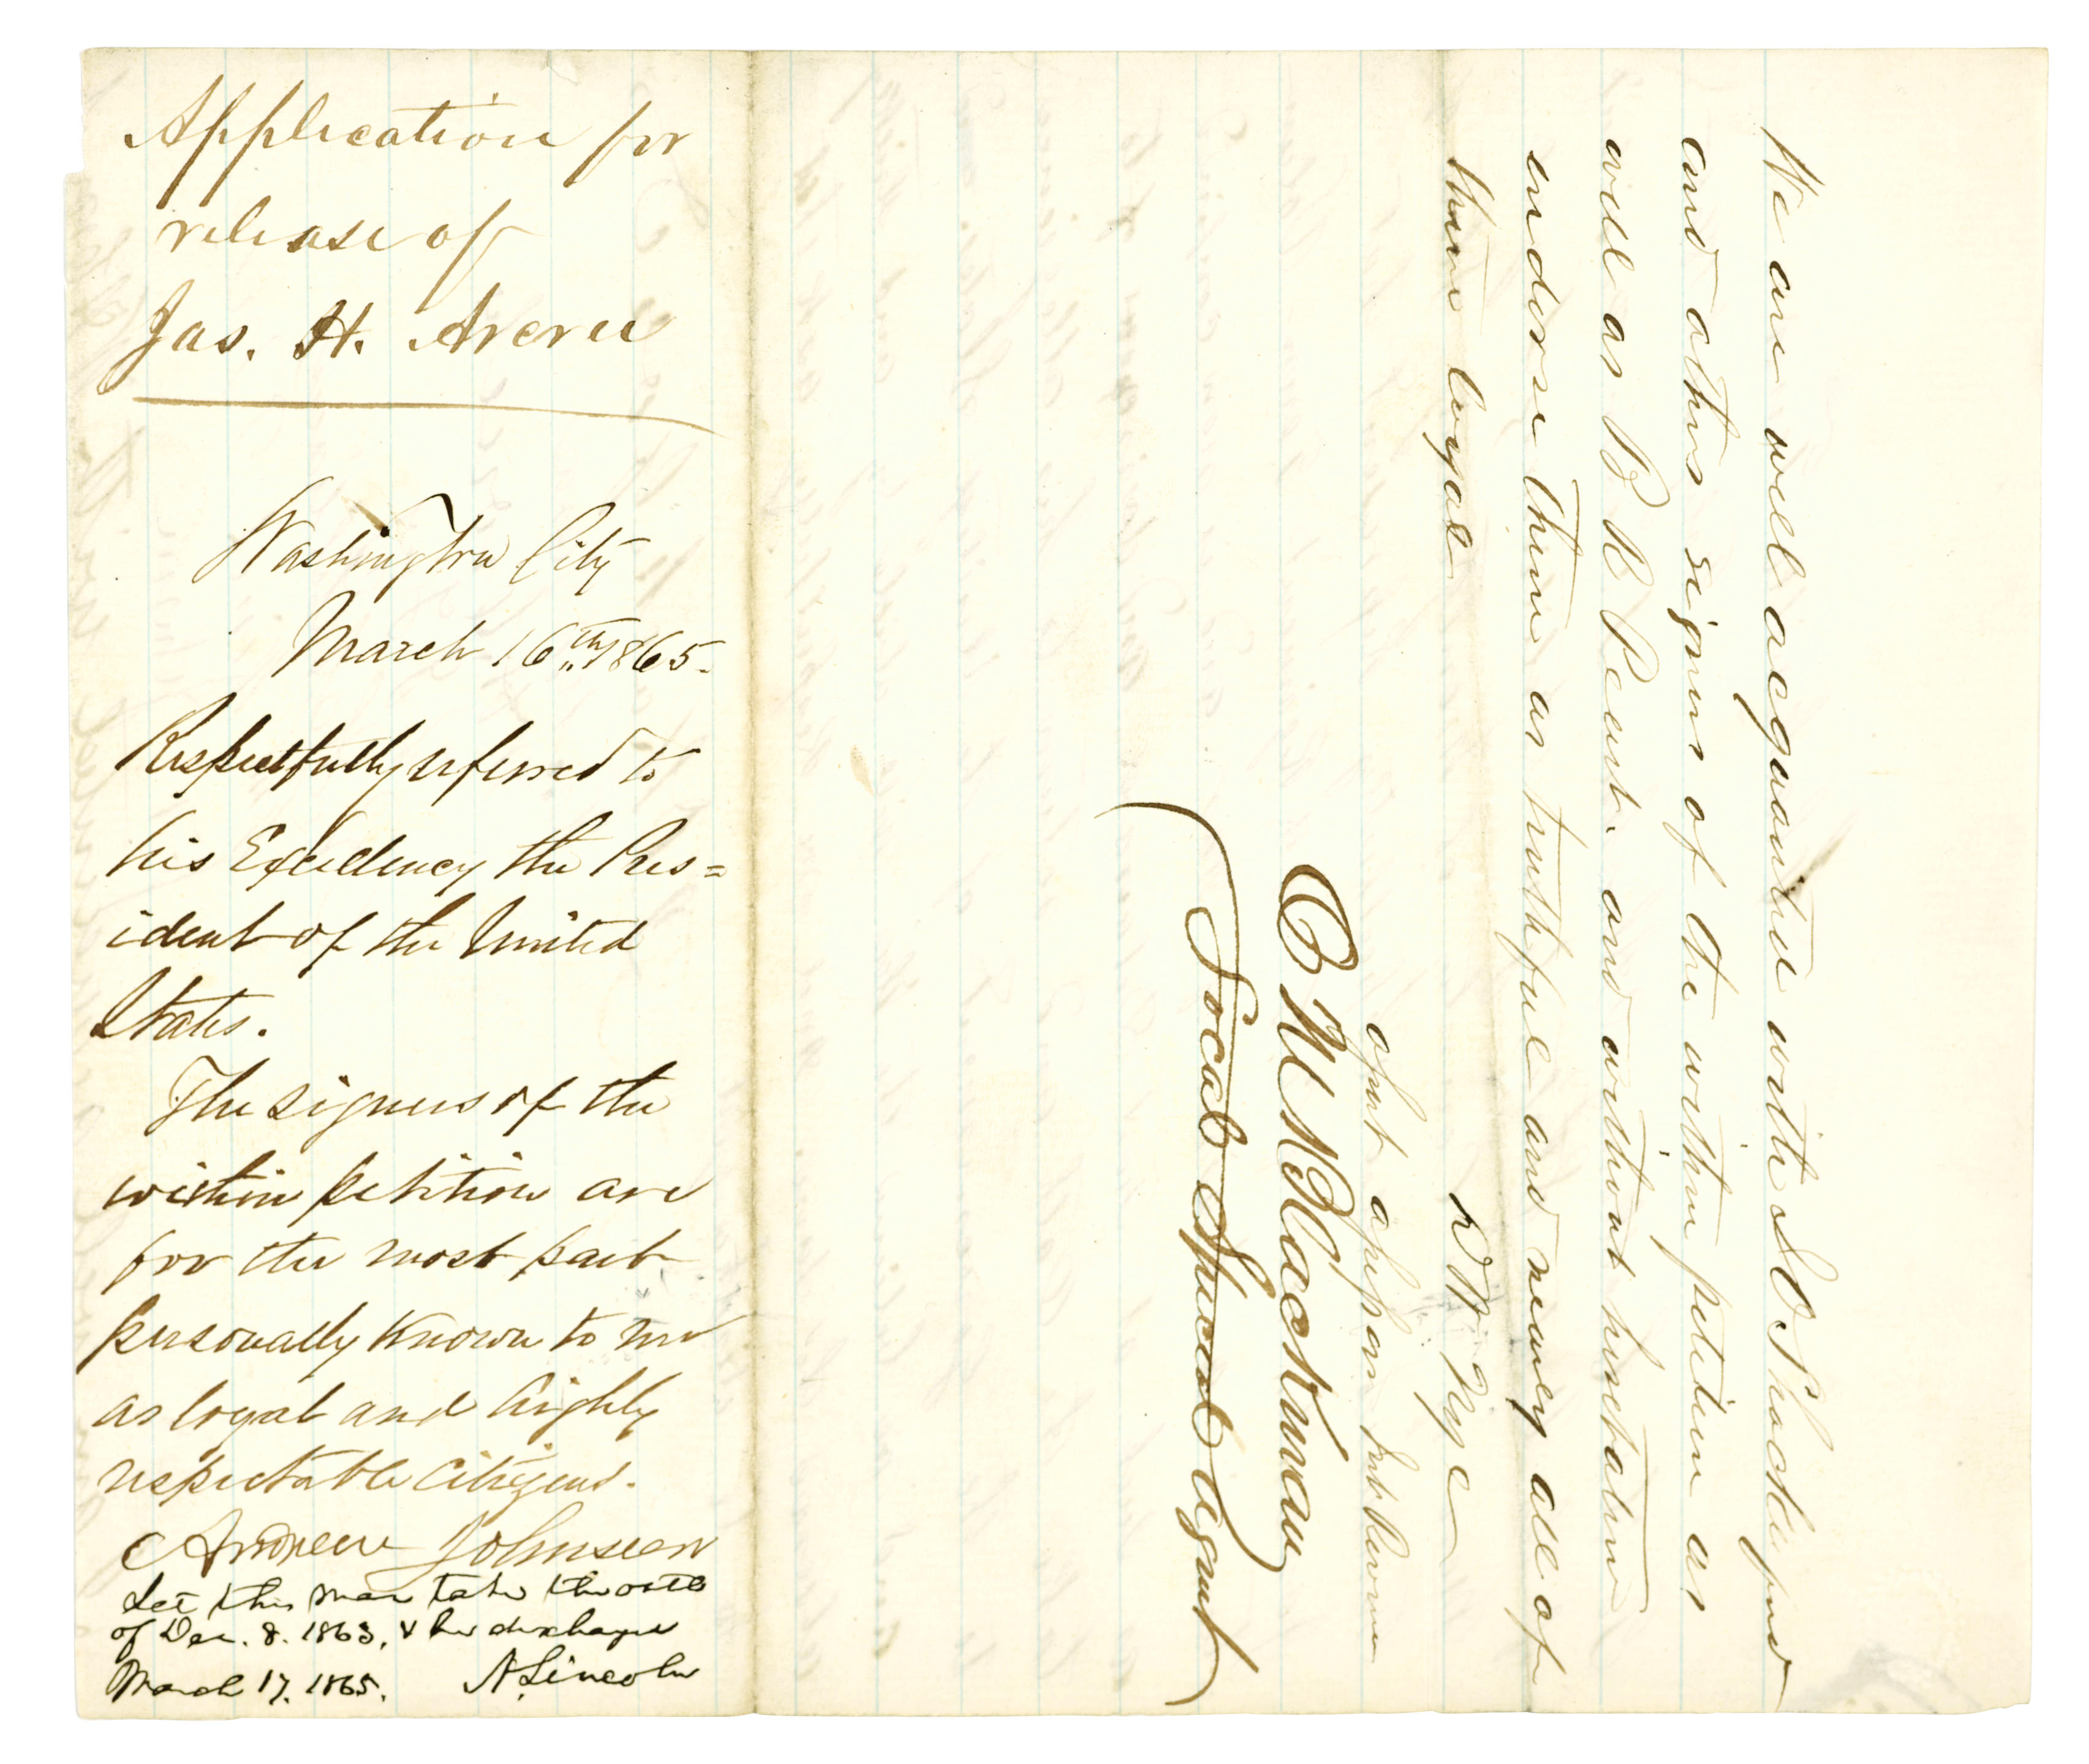 Application for
release of
Jas. H.
Washington City
March 16th 1865.
Respectfully referred to
his Excellency the Pres=
ident of the United
States.
The signers of the
within petition are
for the most part
personally known to me
as loyal and highly
respectable citizens.
Andrew Johnson
Let this man take the oath
of Dec. 8. 1863, & be discharged
March 17. 1865. A. Lincoln
We are well acquainted with
and others signers of the within petition as
well as B R Peart. and without hesitation
endorse them as truthful and nearly all of
them loyal
Agent
Blackman
Local Special Agent